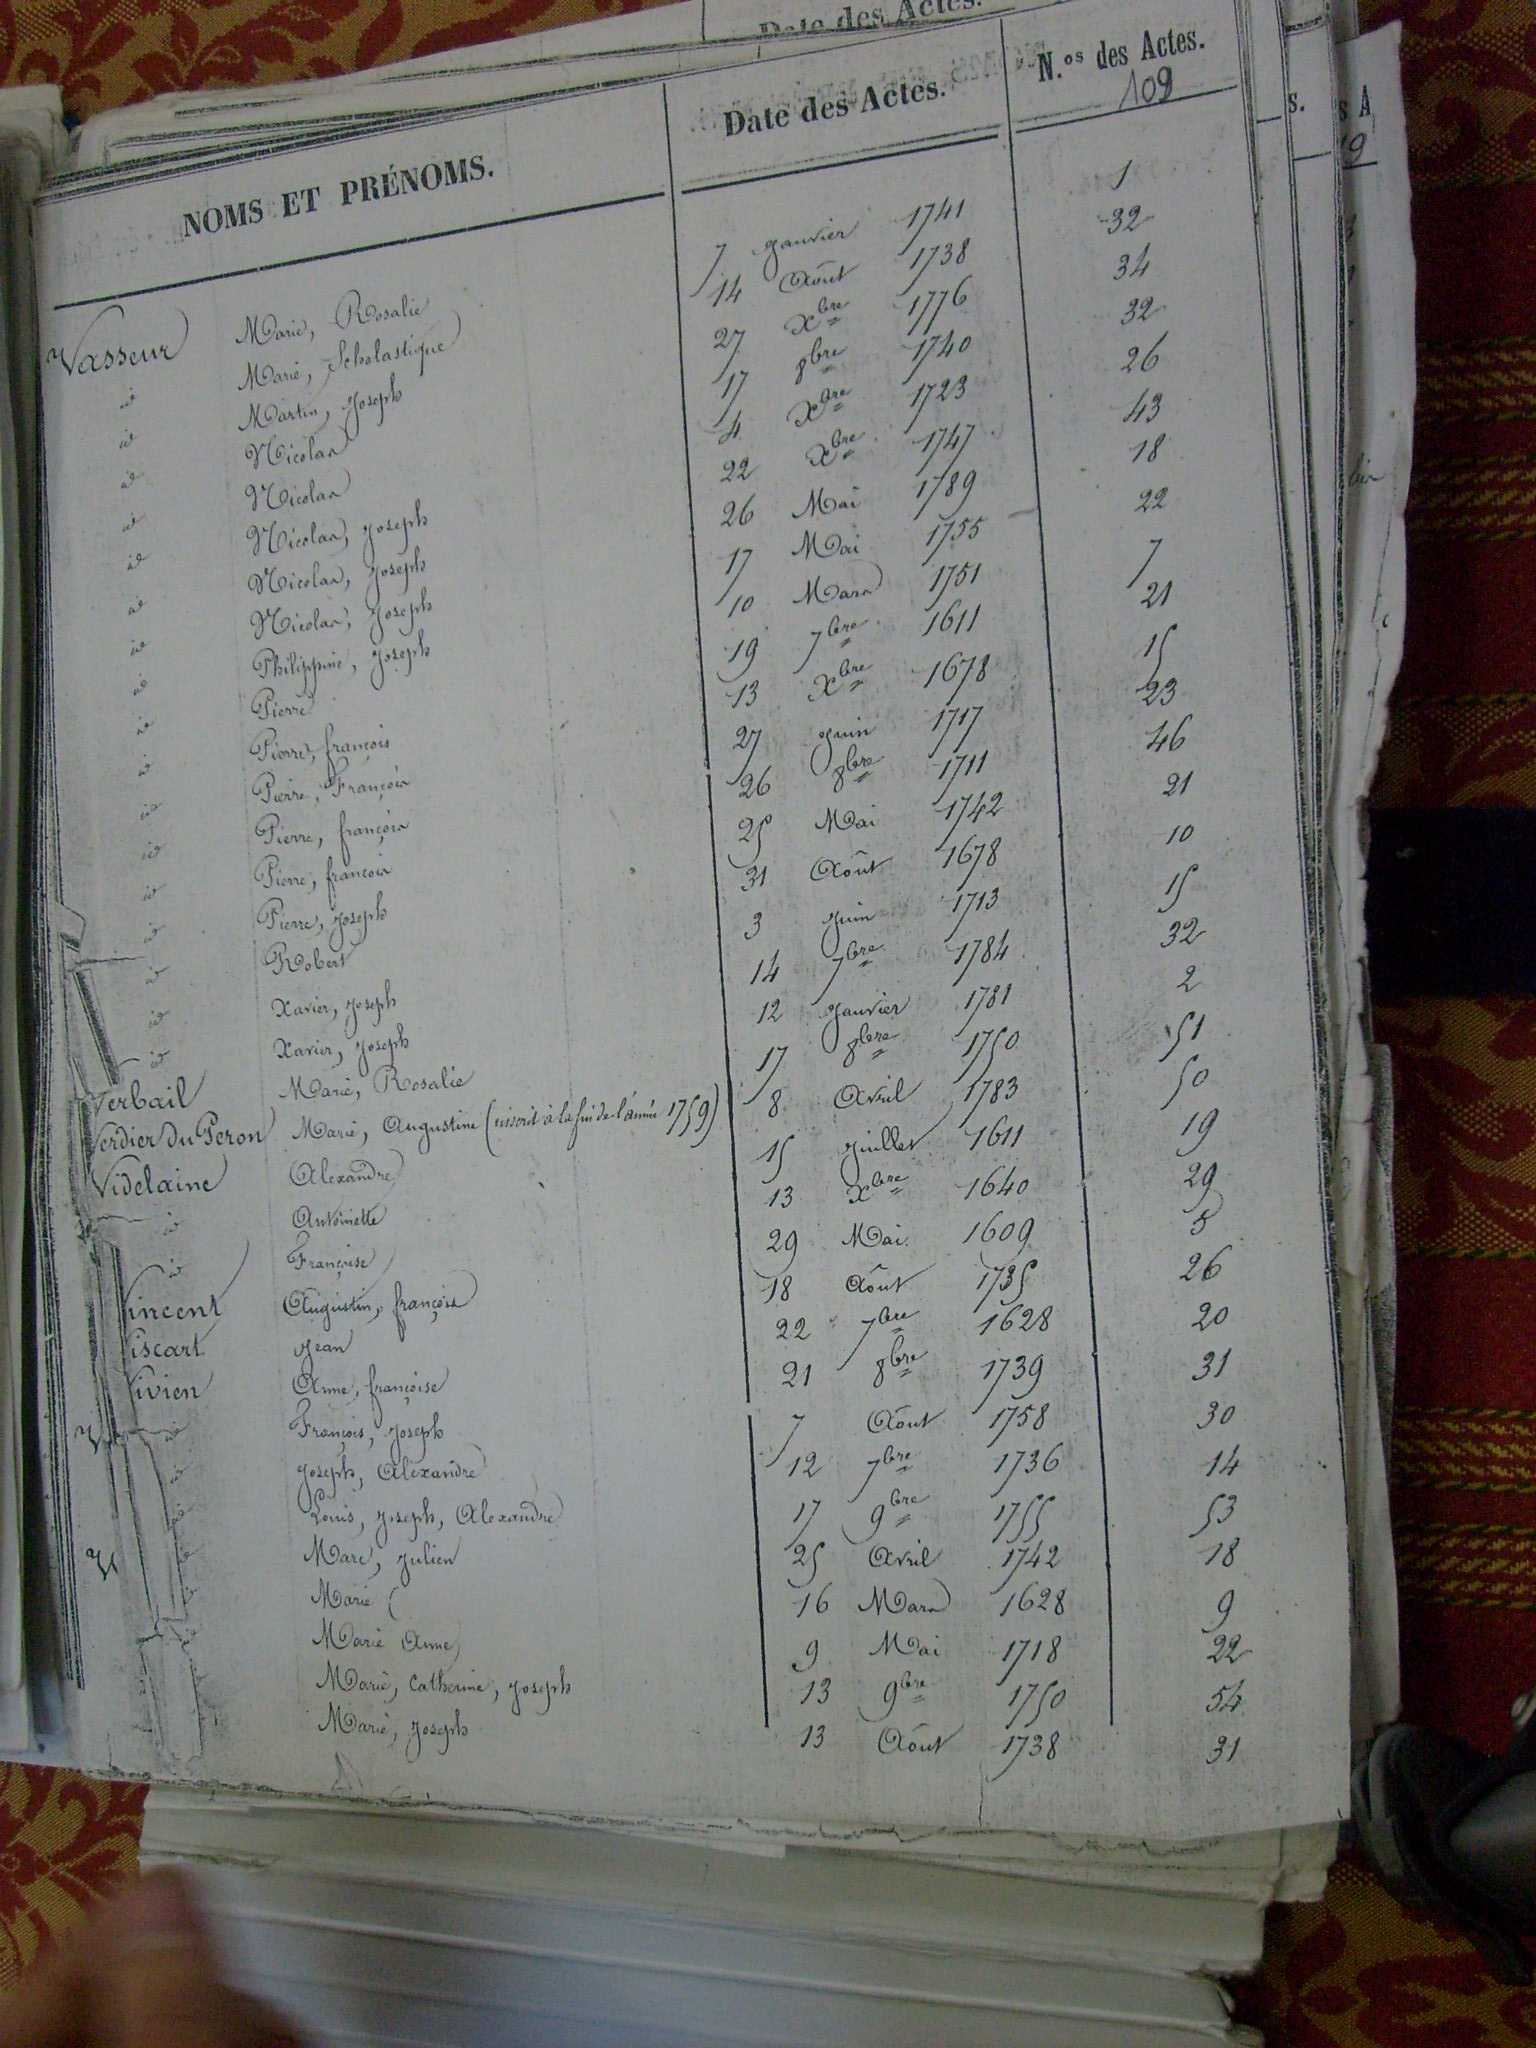 Date des Actes.
NOMS ET PRÉNOMS. Date des Actes. N.os des Actes.
109
Vasseur Marie, Rosalie 7 Janvier 1741 1
id Marie, Scholastique 14 Août 1738 32
id Martin, Joseph 27 Xbre 1776 34
id Nicolas 17 8bre 1740 32
id Nicolas 4 Xbre 1723 26
id Nicolas, Joseph 22 Xbre 1747 43
id Nicolas, Joseph 26 Mai 1789 18
id Nicolas, Joseph 17 Mai 1755 22
id Philippine, Joseph 10 Mars 1751 7
id Pierre 19 7bre 1611 21
id Pierre, françois 13 Xbre 1678 15
id Pierre, François 27 Juin 1717 23
id Pierre, françois 26 8bre 1711 46
id Pierre, françois 25 Mai 1742 21
id Pierre, Joseph 31 Août 1678 10
id Robert 3 Juin 1713 15
id Xavier, Joseph 14 7bre 1784 32
id Xavier, Joseph 12 Janvier 1781 2
Verbail Marie, Rosalie 17 8bre 1750 51
Verdier du Peron Marie, Augustine (inscrit à la fin de l'année 1759) 8 Avril 1783 50
Videlaine Alexandre 15 Juillet 1611 19
id Antoinette 13 Xbre 1640 29
id Françoise 29 Mai 1609 5
Vincent Augustin, françois 18 Août 1735 26
Viscart Jean 22 7bre 1628 20
Vivien Anne, françoise 21 8bre 1739 31
id François, Joseph 7 Août 1758 30
id Joseph, Alexandre 12 7bre 1736 14
id Louis, Joseph, Alexandre 17 9bre 1755 53
id Marc, Julien 25 Avril 1742 18
id Marie 16 Mars 1628 9
id Marie Anne 9 Mai 1718 22
id Marie, Catherine, Joseph 13 9bre 1750 54
id Marie, Joseph 13 Août 1738 31